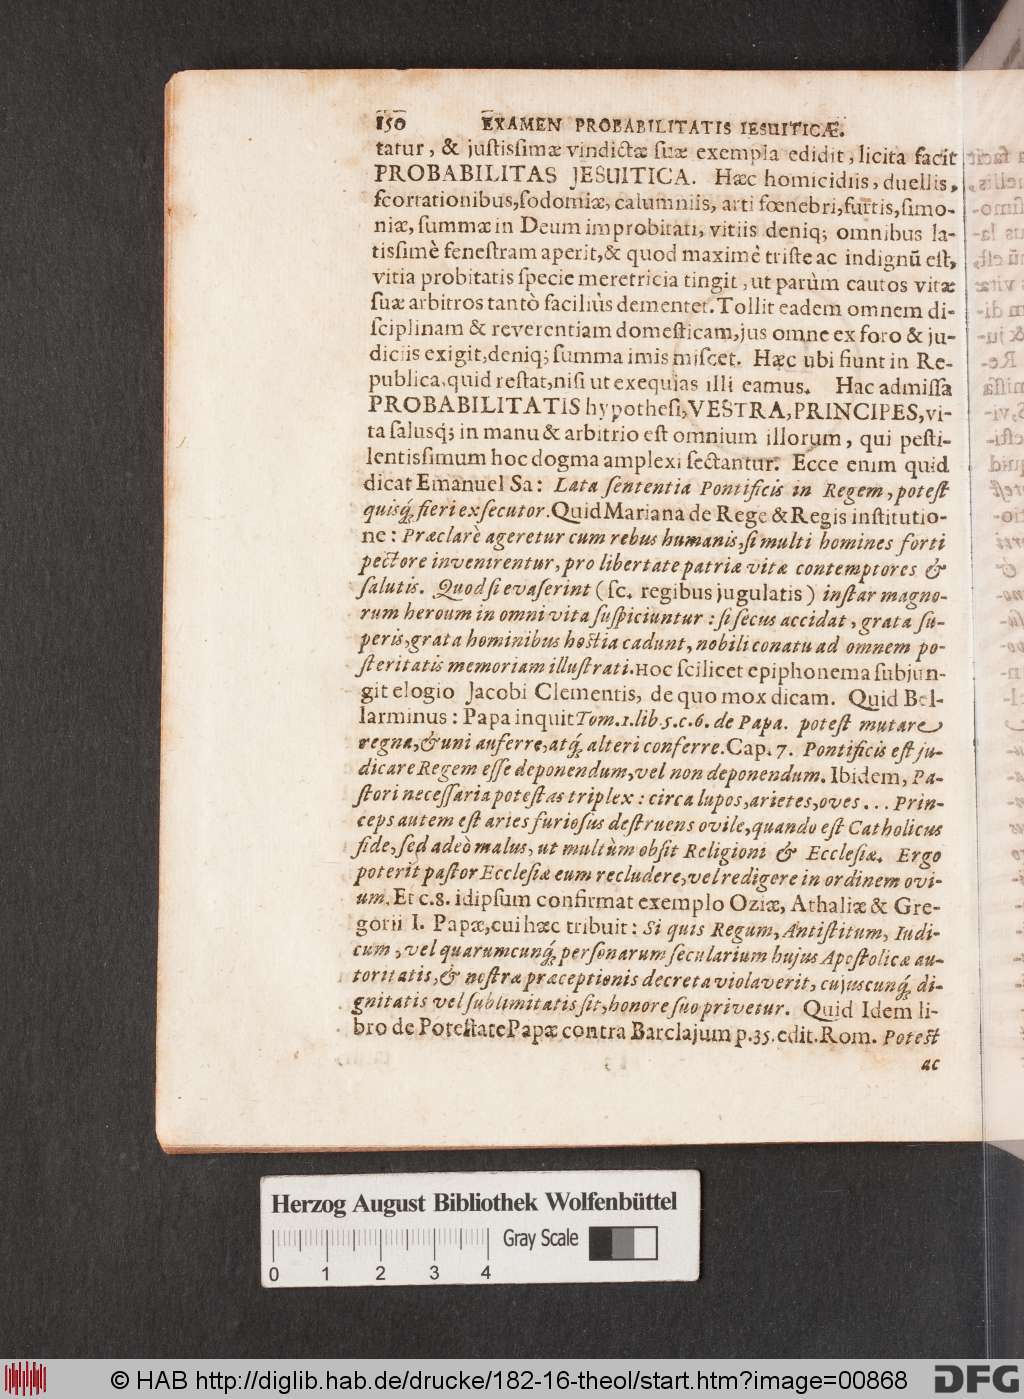 150 EXAMEN PROBABILITATIS IESUITICÆ.
tatur, & juſtisſimæ vindictæ ſuæ exempla edidit, licita facit
PROBABILITAS JESUITICA. Hæc homicidiis, duellis,
ſcortationibus, ſodomiæ, calumniis, arti fœnebri, furtis, ſimo-
niæ, ſummæ in Deum improbitati, vitiis deniq; omnibus la-
tisſimè feneſtram aperit, & quod maximè triſte ac indignũ eſt,
vitia probitatis ſpecie meretricia tingit, ut parùm cautos vitæ
ſuæ arbitros tantò faciliùs dementet. Tollit eadem omnem di-
ſciplinam & reverentiam domeſticam, jus omne ex foro & ju-
diciis exigit, deniq; ſumma imis miſcet. Hæc ubi fiunt in Re-
publica, quid reſtat, niſi ut exequias illi eamus. Hac admiſſa
PROBABILITATIS hypotheſi, VESTRA, PRINCIPES, vi-
ta ſalusq́; in manu & arbitrio eſt omnium illorum, qui peſti-
lentisſimum hoc dogma amplexi ſectantur. Ecce enim quid
dicat Emanuel Sa: Lata ſententia Pontificis in Regem, poteſt
quisq́; fieri exſecutor. Quid Mariana de Rege & Regis inſtitutio-
ne: Præclarè ageretur cum rebus humanis, ſi multi homines forti
pectore invenirentur, pro libertate patriæ vitæ contemptores &
ſalutis. Quod ſi evaſerint (ſc. regibus jugulatis) inſtar magno-
rum heroum in omni vita ſuſpiciuntur: ſi ſecus accidat, grata ſu-
peris, grata hominibus hoſtia cadunt, nobili conatu ad omnem po-
ſteritatis memoriam illuſtrati. Hoc ſcilicet epiphonema ſubjun-
git elogio Jacobi Clementis, de quo mox dicam. Quid Bel-
larminus: Papa inquit Tom. 1. lib. 5. c. 6. de Papa. poteſt mutare
regna, & uni auferre, atq́; alteri conferre. Cap. 7. Pontificis eſt ju-
dicare Regem eſſe deponendum, vel non deponendum. Ibidem, Pa-
ſtori neceſſaria poteſtas triplex: circa lupos, arietes, oves... Prin-
ceps autem eſt aries furioſus deſtruens ovile, quando eſt Catholicus
fide, ſed adeò malus, ut multùm obſit Religioni & Eccleſiæ. Ergo
poterit paſtor Eccleſiæ eum recludere, vel redigere in ordinem ovi-
um. Et c. 8. idipſum confirmat exemplo Oziæ, Athaliæ & Gre-
gorii I. Papæ, cui hæc tribuit: Si quis Regum, Antiſtitum, Iudi-
cum, vel quarumcunq́; perſonarum ſecularium hujus Apoſtolicæ au-
toritatis, & noſtræ præceptionis decreta violaverit, cujuscunq́; di-
gnitatis vel ſublimitatis ſit, honore ſuo privetur. Quid Idem li-
bro de Poteſtate Papæ contra Barclajum p. 35. edit. Rom. Poteſt
ac
Herzog August Bibliothek Wolfenbüttel
Gray Scale
0 1 2 3 4
© HAB http://diglib.hab.de/drucke/182-16-theol/start.htm?image=00868
DFG